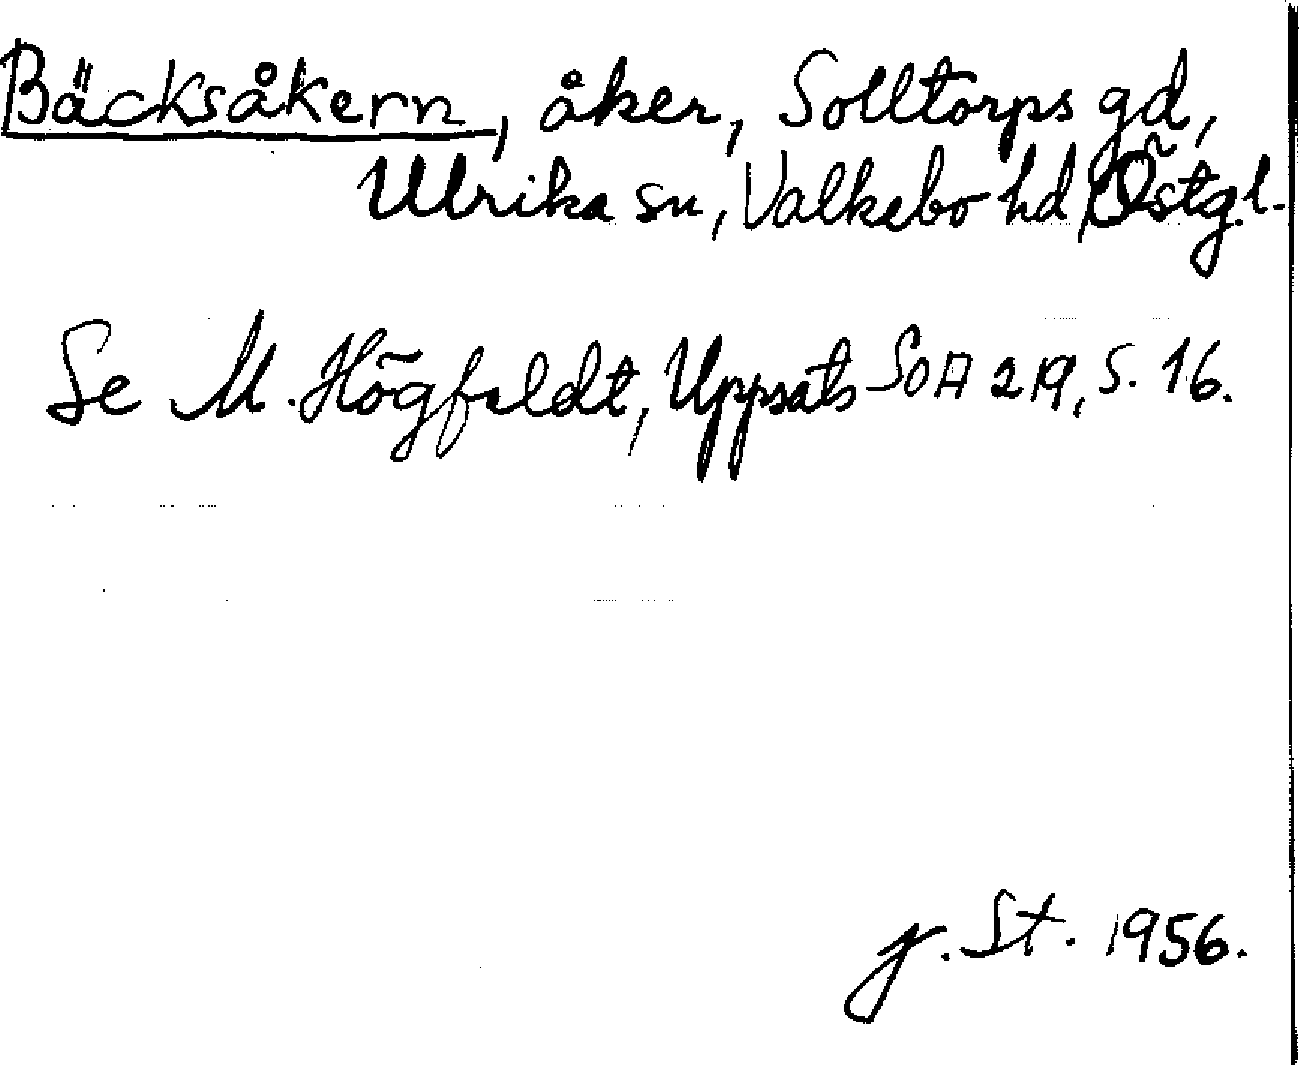 Bäcksåkern, åker, Solltorps gd,
Ulrika sn, Valkebo hd, Östgl.
Se M. Högfeldt, Uppsats SOA 219, s. 16.
J. St. 1956.